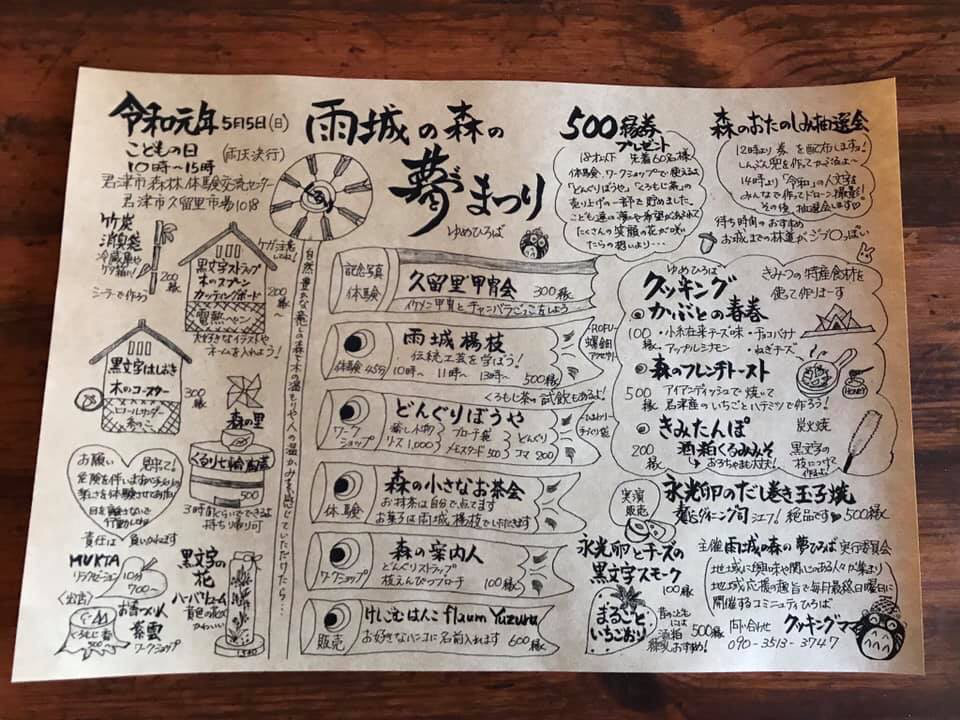 令和元年 5月5日(日)
こどもの日 (雨天決行)
10時〜15時
君津市森林体験交流センター
君津市久留里市場1018
雨城の森の
夢まつり
ゆめひろば
500縁券
プレゼント
18才以下 先着60名様
体験、ワークショップで使える
「どんぐりぼうや」「くろもじ茶」の
売り上げの一部で貯めました。
こども達の夢や希望があふれて
たくさんの笑顔の花が咲い
たらの想いより…
森のおたのしみ抽選会
12時より券を配布します!
しんぶん兜を作ってかぶ治よ〜
14時より「令和」の人文字を
みんなで作ってドローン撮影!
その後、抽選会します
待ち時間のおすすめ
お城までの林道がジブリっぽい
竹炭
消臭袋
冷蔵庫や
ゲタ箱に!
200縁
シーラーで作ろう
ケガ注意
してね!
黒文字ストラップ
木のスプーン
カッティングボード
200縁〜
電熱ペン
大好きなイラストや
ネームを入れよう!
黒文字はしおき
木のコースター
300縁
自然豊かな癒しの森で木の温もりや人の温かみを感じていただけたら…
記念写真
体験
久留里甲冑会 300縁
イケメン甲冑とチャンバラごっこをしよう
体験45分
雨城楊枝
伝統工芸を学ぼう!
10時〜 11時〜 13時〜 500縁
くろもじ茶の試飲もあるよ!
ROFU
螺鈿
アクセサリー
ワークショップ
どんぐりぼうや
リース 1,000
ブローチ 袋
メモスタンド 500
どんぐり
コマ 200
体験
森の小さなお茶会
お抹茶は自分で点てます
お菓子は雨城楊枝でいただきます
ワークショップ
森の案内人
どんぐりストラップ
植えんぴつブローチ 100縁
販売
けしごむはんこ flaum Yuzuru
お好きなハンコに名前入れます 600縁
ゆめひろば
クッキング
きみつの特産食材を
使って作りまーす
かぶとの春巻
100縁 ・小糸在来チーズ味 ・チョコバナナ
・アップルシナモン ・ねぎチーズ
森のフレンチトースト
500縁 アイアンディッシュで焼いて
君津産のいちごとハチミツで作ろう!
HONEY
きみたんぽ
炭火焼
200縁 酒粕くるみみそ
おこちゃまも大丈夫!
黒文字の
枝につけて
作るよ!
実演
販売
永光卵のだし巻き玉子焼
シェフ! 絶品です 500縁
永光卵とチーズの
黒文字スモーク
100縁
まるごと
いちごおり
500縁
練乳おすすめ!
主催 雨城の森の夢ひろば 実行委員会
地域に興味や関心のある人々が集まり
地域応援の趣旨で毎月最終日曜日に
開催するコミュニティひろば
問い合わせ クッキングママ
090-3513-3747
森の里
くるり七輪
500
3時間くらいでできるよ
持ち帰り可
お願い 見守って!
危険を伴いますがモノづくりの
楽しさを体験させてあげたい
目を離さないで
行動しよう
責任は負いかねます
MUKTA
リラクゼーション
10分
700〜
〈出店〉
お香づくり
紫雲
ワークショップ
くろもじ香
500〜
黒文字の
花
ハーバリウム
黄色の花が
かわいい
1,500